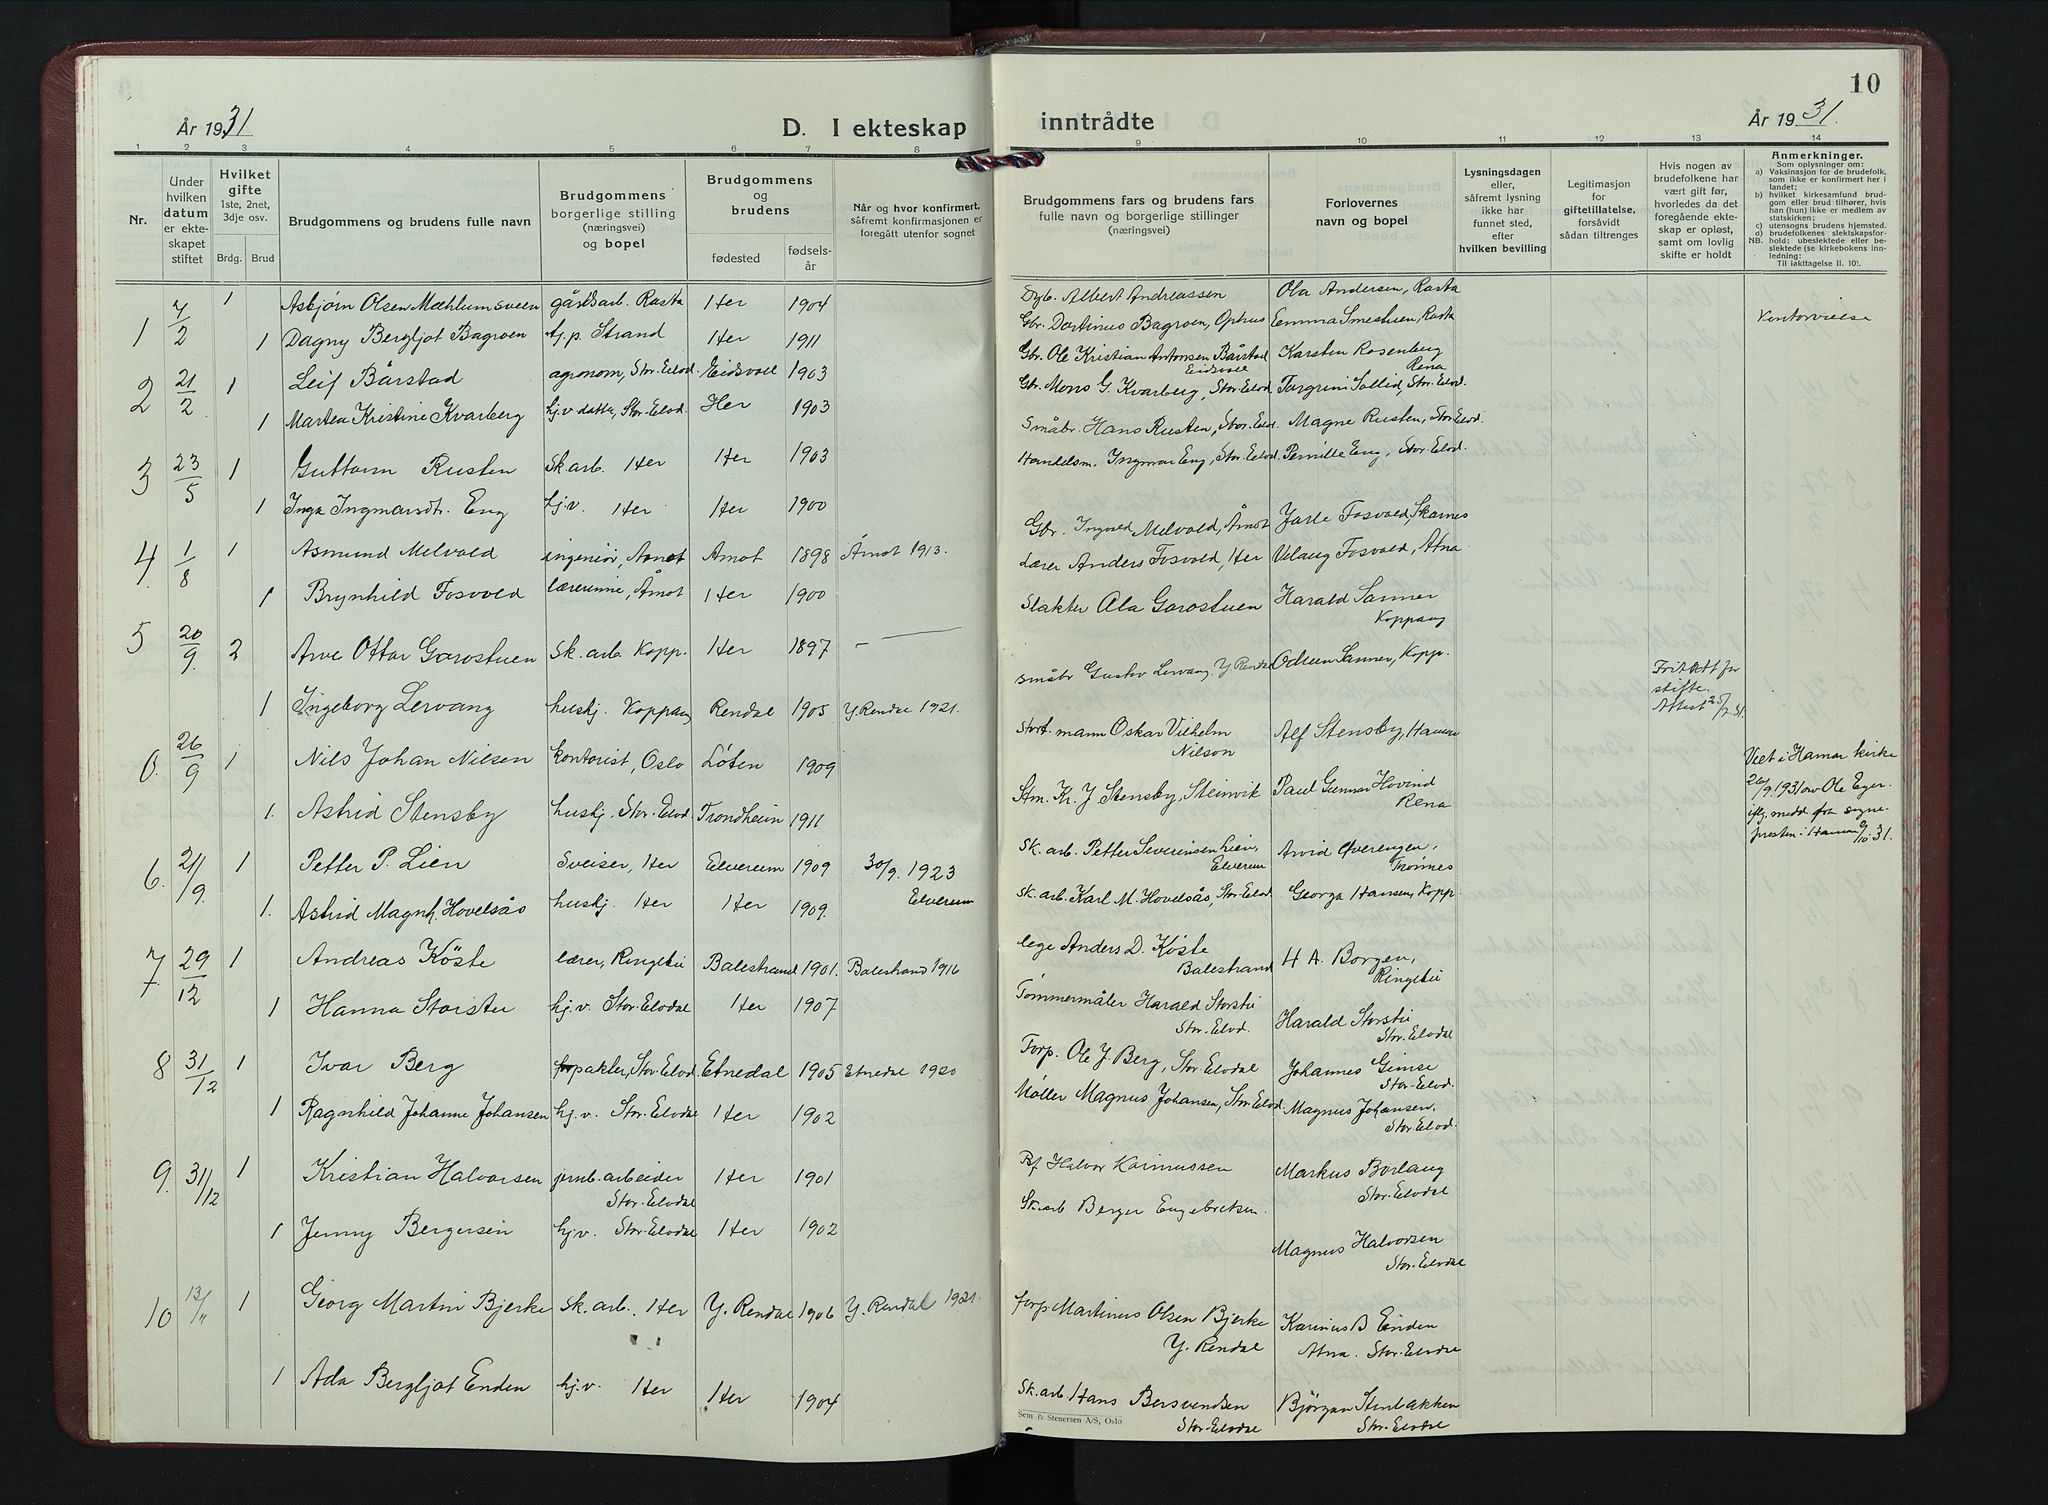 År 1931
D. I ekteskap
1 2 3 4 5 6 7 8
Nr.
Under hvilken datum er ekteskapet stiftet
Hvilket gifte
1ste, 2net, 3dje osv.
Brdg. Brud
Brudgommens og brudens fulle navn
Brudgommens borgerlige stilling (næringsvei) og bopel
Brudgommens og brudens
fødested
fødselsår
Når og hvor konfirmert, såfremt konfirmasjonen er foregått utenfor sognet
1 7/2 1 Asbjørn Olsen Mæhlumsveen gårdsarb. Rasta Her 1904
1 Dagny Bergljot Bagroen tj.p. Strand Her 1911
2 21/2 1 Leif Bårstad agronom, Stor-Elvd. Eidsvoll 1903
1 Martea Kristine Kvarberg hj.v. datter, Stor-Elvd. Her 1903
3 23/5 1 Guttorm Rusten Sk.arb. Her Her 1903
1 Inga Ingmarsdtr. Eng hj.v. Her Her 1900
4. 1/8 1 Asmund Melvold ingeniør, Åmot Åmot 1898 Åmot 1913.
1 Brynhild Fosvold lærerinne, Åmot Her 1900
5 20/9. 2 Arve Ottar Garostuen Sk.arb. Kopp. Her 1897 —
1 Ingeborg Lervang hushj. Koppang Rendal 1905 Y. Rendal 1921.
6. 26/9 1 Nils Johan Nilsen kontorist, Oslo Løten 1909
1. Astrid Stensby hushj. Stor-Elvd. Trondheim 1911
6. 21/9. 1 Petter P. Lien Sveiser, Her Elverum 1909 30/9. 1923
Elverum
1. Astrid Magnh. Hovelsås hushj. Her Her 1909.
7. 29/12 1 Andreas Köste lærer, Ringebu Balestrand 1901. Balestrand 1916
1 Hanna Storstu hj.v. Stor-Elvdal Her 1907
8 31/12 1 Ivar Berg forpakter, Stor-Elvd. Etnedal 1905 Etnedal 1920
1 Ragnhild Johanne Johansen hj.v. Stor-Elvdal Her 1902
9. 31/12 1 Kristian Halvorsen jernb.arbeider Her 1901
Stor-Elvdal
1 Jenny Bergersen hj.v. Stor-Elvdal Her 1902
10 13/11 1 Georg Martin Bjerke Sk.arb. Her Y. Rendal 1906 Y. Rendal 1921.
1 Ada Bergljot Enden hj.v. Her Her 1904
inntrådte
10
År 1931.
9 10 11 12 13 14
Brudgommens fars og brudens fars fulle navn og borgerlige stillinger
Forlovernes navn og bopel
Lysningsdagen eller, såfremt lysning ikke har funnet sted, efter hvilken bevilling
Legitimasjon for giftetillatelse, forsåvidt sådan tiltrenges
Hvis nogen av brudefolkene har vært gift før, hvorledes da det foregående ekteskap er opløst, samt om lovlig skifte er holdt
Anmerkninger.
Som oplysninger om:
a) Vaksinasjon for de brudefolk, som ikke er konfirmert her i landet;
b) hvilket kirkesamfund brudgom eller brud tilhører, hvis han (hun) ikke er medlem av statskirken;
c) utensogns brudens hjemsted.
d) brudefolkenes slektskapsforhold: ubeslektede eller beslektede (se kirkebokens innledning:
NB. Til iakttagelse II. 10).
Albert Andreassen Ola Andersen, Rasta
Gbr. Dortinus Bagroen, Ophus Emma Smestuen, Rasta
Kontorvielse
Gbr. Ole Kristian Antonsen Bårstad Karsten Rosenberg
Eidsvoll Rena
Gbr. Mons G. Kvarberg, Stor-Elvd. Torgrim Sollid, Stor-Elvd.
Småbr. Hans Rusten, Stor-Elvd. Magne Rusten, Stor-Elvd.
Handelsm. Ingmar Eng, Stor-Elvd. Pernille Eng, Stor-Elvd.
Gbr. Ingvald Melvold, Åmot Jarle Fosvold, Skarnes
Lærer Anders Fosvold, Her Velaug Fosvold, Atna
Slakter Ola Garostuen Harald Sanner
Koppang
småbr. Gustav Lervang, Y. Rendal Odleen Sanner, Kopp.
Fritatt for
skifte.
Attest 25/7. 31.
Stort. mann Oskar Vilhelm Alf Stensby, Hamar
Nilson
Stm. Kr. J. Stensby, Steinvik Paul Gunnar Hovind
Rena
Viet i Hamar kirke
26/9. 1931 av Ole Eger.
iflg. medd. fra sogne-
presten i Hamar 9/10. 31.
Sk.arb. Petter Severinsen Lien, Arvid Øverengen,
Elverum Trønnes
Sk.arb. Karl M. Hovelsås, Stor-Elvd. Georga Hansen, Kopp.
lege Anders D. Köste H. A. Borgen,
Balestrand Ringebu
Tømmermåler Harald Storstu Harald Storstu
Stor-Elvd. Stor-Elvdal
Forp. Ole J. Berg, Stor-Elvdal Johannes Gimse
Stor-Elvd.
Møller Magnus Johansen, Stor-Elvd. Magnus Johansen,
Stor-Elvd.
Halvor Rasmussen Markus Borlaug
Stor-Elvdal
Sk.arb Berger Engebretsen. Magnus Halvorsen
Stor-Elvdal
forp. Martinus Olsen Bjerke Karinus B. Enden
Y. Rendal Atna. Stor-Elvdal
Sk.arb. Hans Bersvendsen Björgan Stenbakken
Stor-Elvdal Stor-Elvdal
Sem & Stenersen A/S, Oslo